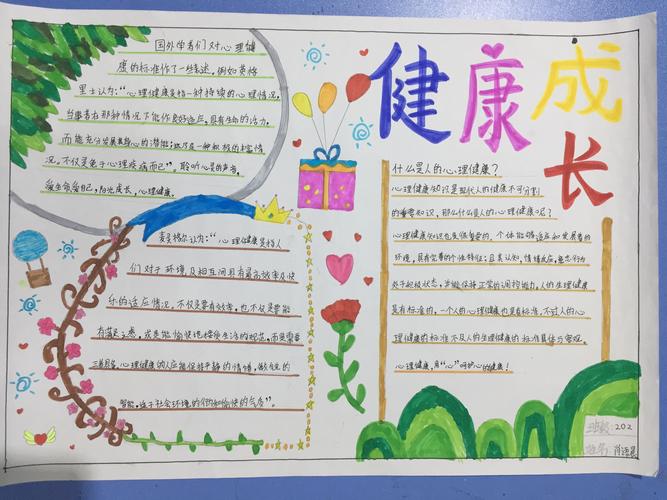 健康成长
国外学者们对心理健
康的标准作了一些表述，例如英格
里士认为：“心理健康是指一种持续的心理情况，
当事者在那种情况下能作良好适应，具有生命的活力，
而能充分发展其身心的潜能；这乃是一种积极的丰富情
况。不仅是免于心理疾病而已”。聆听心灵的声音，
爱生命爱自己，阳光成长，心理健康。
麦灵格尔认为：“心理健康是指人
们对于环境及相互间具有最高效率及快
乐的适应情况，不仅是要有效率，也不仅是要能
有满足之感，或是能愉快地接受生活的规范，而是需要
三者具备，心理健康的人应能保持平静的情绪，敏锐的
智能，适于社会环境的行为和愉快的气质”。
什么是人的心理健康？
心理健康知识是现代人的健康不可分割
的重要知识，那么什么是人的心理健康呢？
心理健康知识也是很重要的，个体能够适应和发展着的
环境，具有完善的个性特征；且其认知，情绪反应，意志行为
处于积极状态，并能保持正常的调控能力，人的生理健康
是有标准的，一个人的心理健康也是有标准，不过人的心
理健康的标准不及人的生理健康的标准具体与客观，
心理健康，用“心”呵护心的健康！
班级：202
姓名：